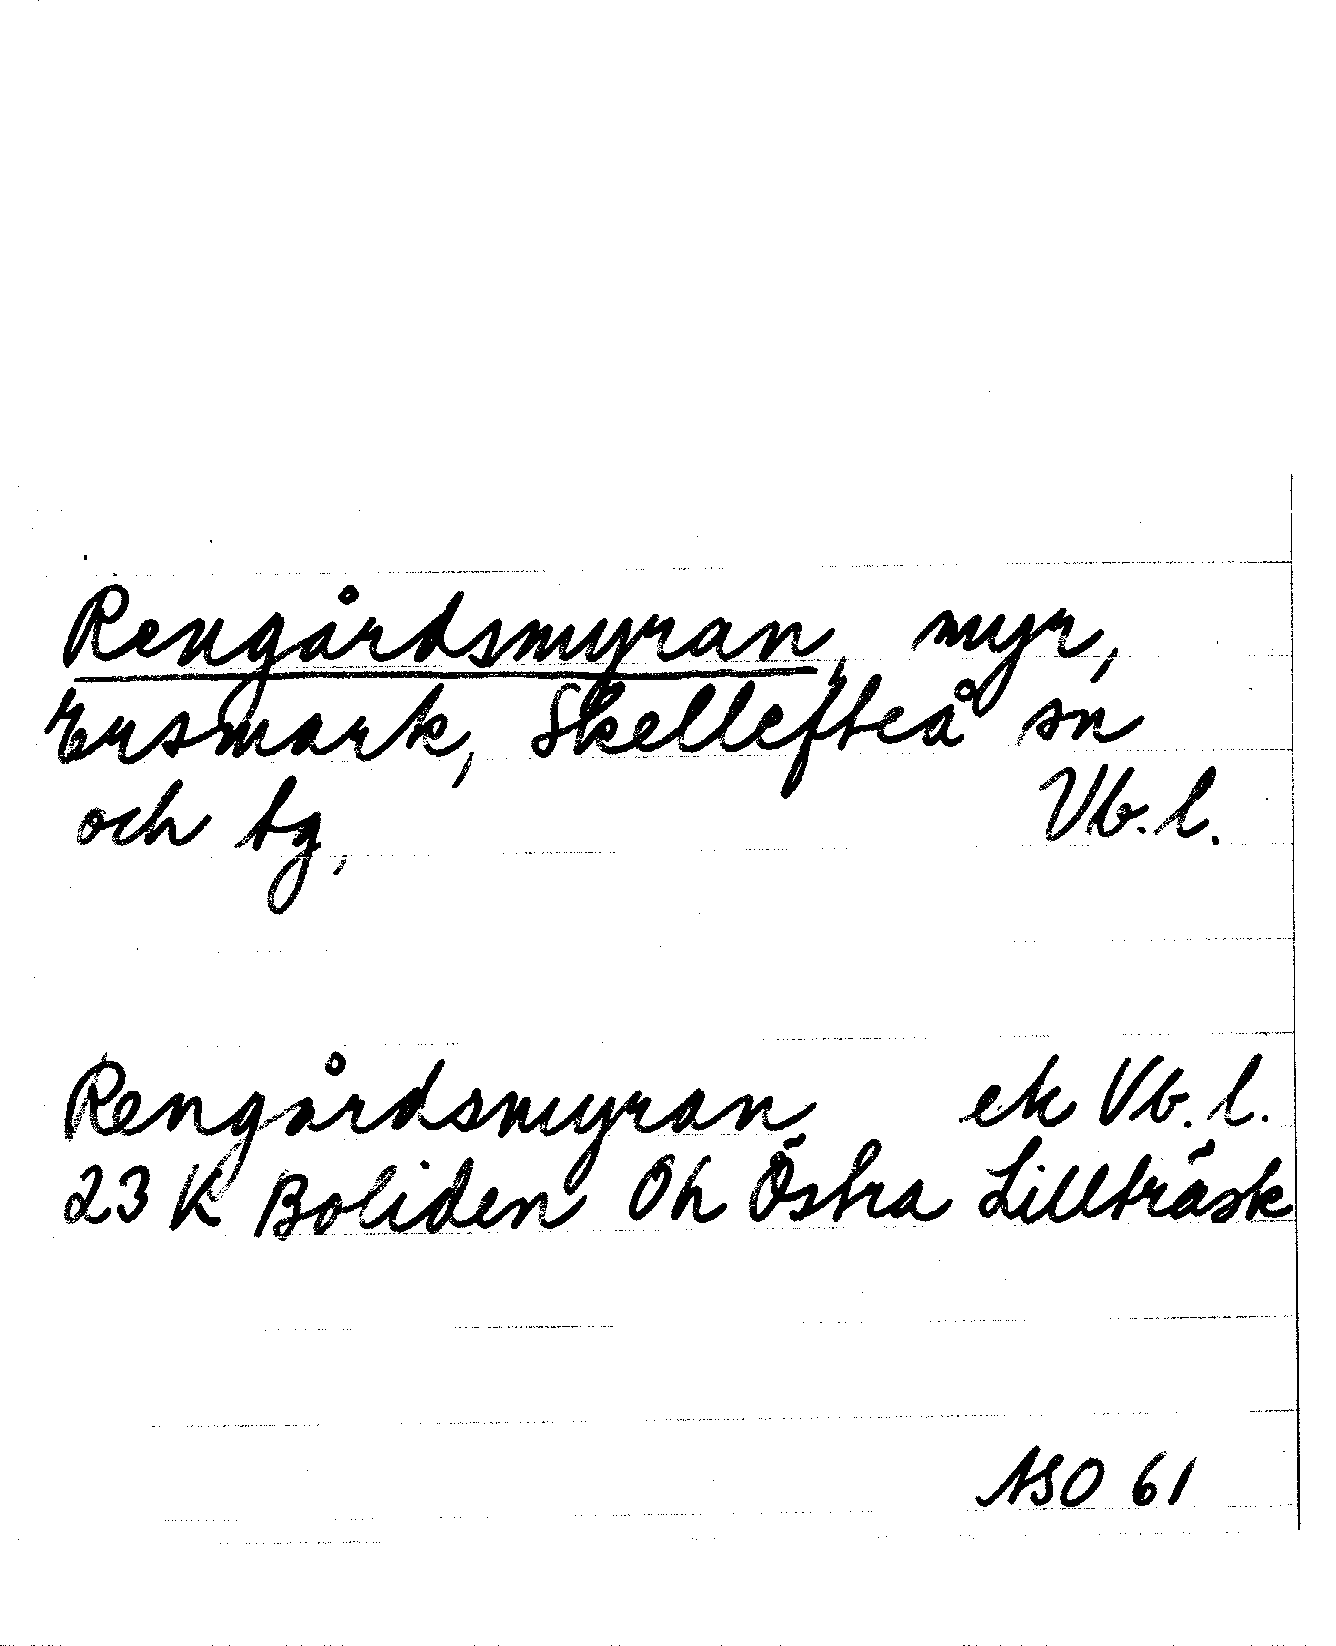 Rengårdsmyran, myr,
Ersmark, Skellefteå sn
och tg, Vb. l.
Rengårdsmyran ek Vb. l.
23 K Boliden Oh Östra Lillträsk
ASO 61